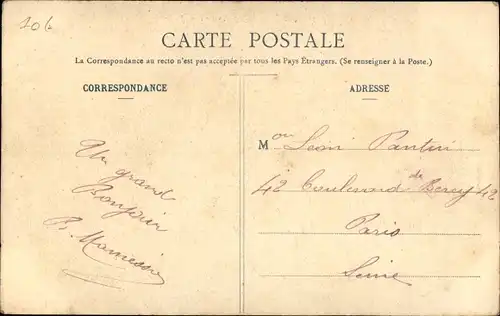 CARTE POSTALE
La Correspondance au recto n'est pas acceptée par tous les Pays Étrangers. (Se renseigner à la Poste.)
CORRESPONDANCE
Un grand
Bonjour
ADRESSE
M
42 Boulevard de Bercy 42
Paris
Seine